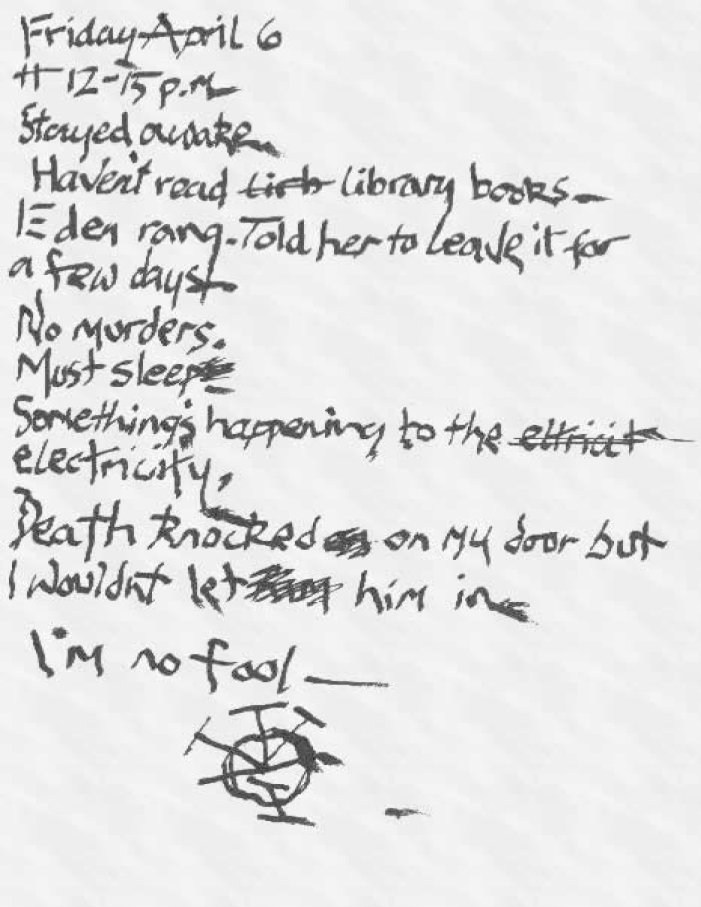 Friday April 6
12-15 p.m
Stayed awake.
Haven't read library books.
Eden rang. Told her to leave it for
a few days.
No murders.
Must sleep
Something's happening to the eltricit
electricity.
Death knocked on my door but
I wouldnt let him in.
I'm no fool